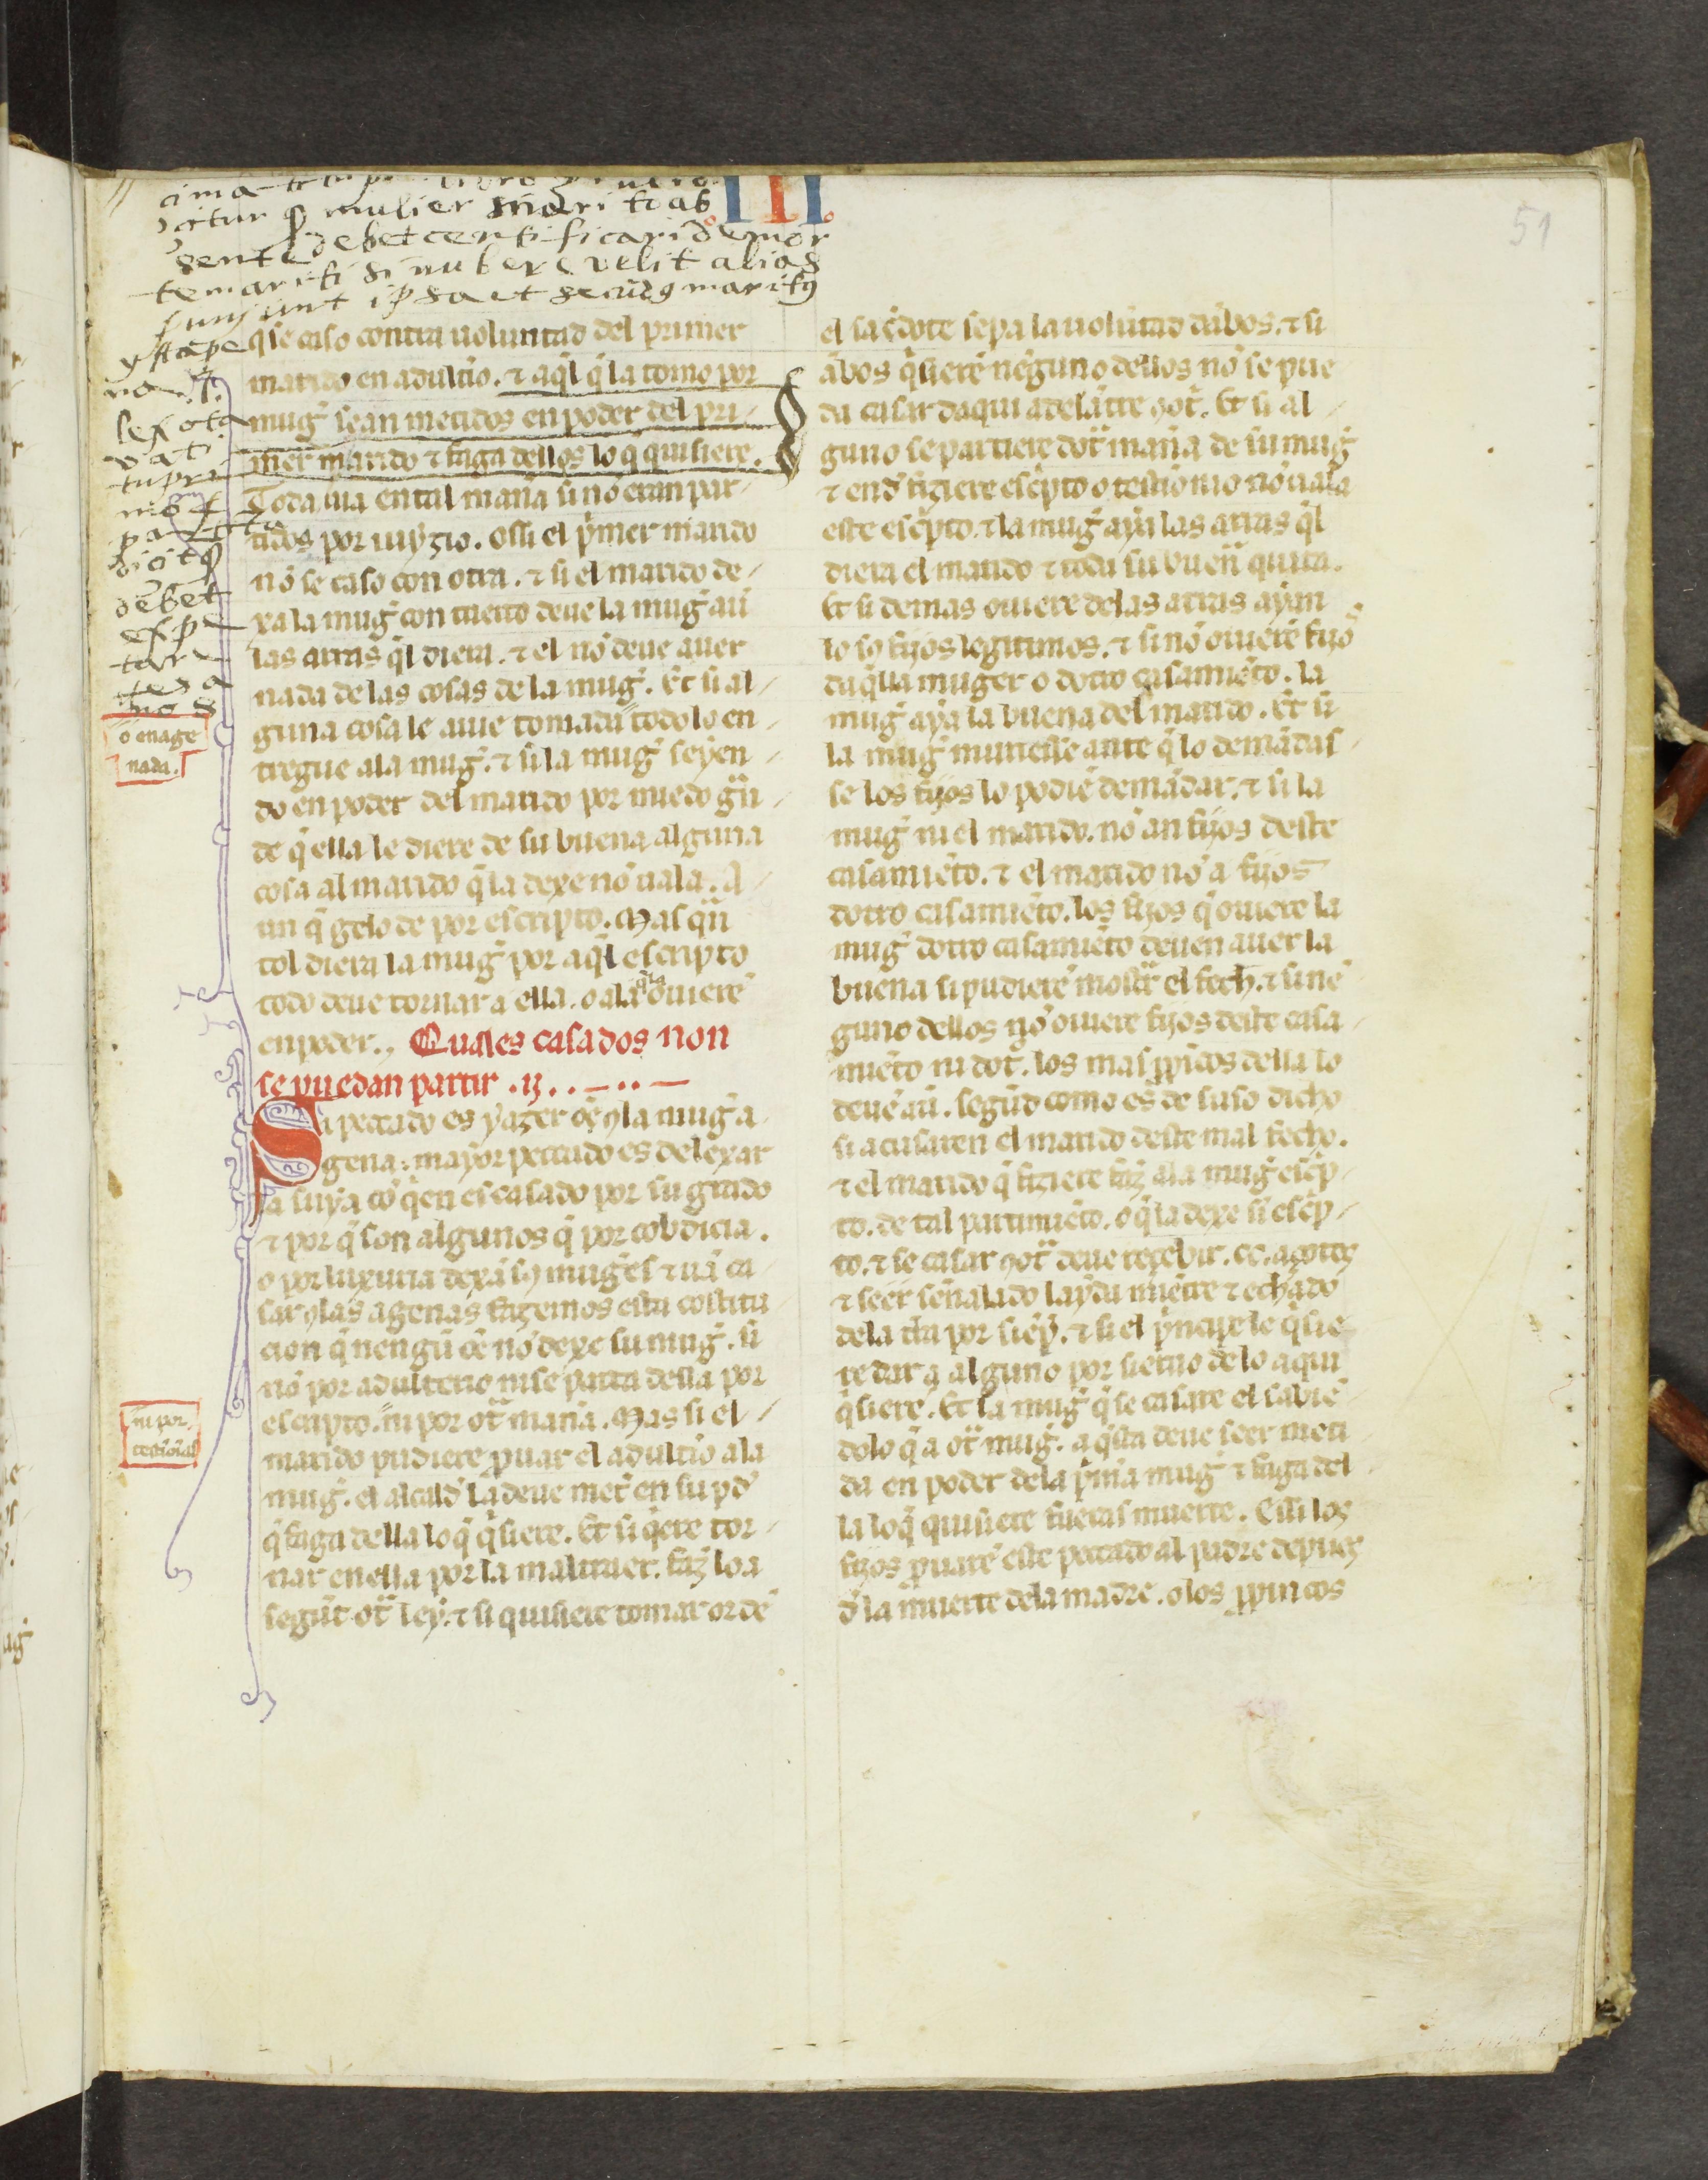 III
51
oitur q̃ mulier mariti ab
sente debet certificari d̃ mor
te mariti si nubere velit alias
puniunt ipsa et secũdꝰ maritꝰ
q̃ se caso contra uoluntad del primer
marido en adult̃io. ⁊ aq̃l q̃ la tomo por
mug̃ sean metidos en poder del pri-
mer marido ⁊ faga dellos lo q̃ quisiere.
Toda uia en tal mañã si nõ eran par-
tidos por iuyzio. o si el p̃mer marido
nõ se caso con otra. ⁊ si el marido de-
xa la mug̃ con tuerto deue la mug̃ au̾
las arras q̃l diera. ⁊ el nõ deue auer
nada de las cosas de la mug̃. Et si al-
guna cosa le aiue tomada todo lo en-
tregue ala mug̃. ⁊ si la mug̃ seyen-
do en poder del marido por miedo g̃n
de q̃ ella le diere de su buena alguna
cosa al marido q̃ la dexe nõ uala. A-
un q̃ gelo de por escripto. Mas q̃n
tol diera la mug̃ por aq̃l escripto
todo deue tornar a ella. o alã q̃ la ouierẽ
en poder. Quales casados non
se puedan partir .ij.
Si peccado es yazer oẽ ꝯ la mug̃ a
gena: mayor peccado es de lexar
la suya cõ q̃en es casado por su grado
⁊ por q̃ son algunos q̃ por cobdicia.
o por luxuria dexã sꝯ mug̃es ⁊ uã ca
sar ꝯ las agenas fazemos esta costitu
cion q̃ nengũ oẽ nõ dexe su mug̃. si
nõ por adulterio ni se parta della por
escripto. ni por ot̃ mañã. Mas si el
marido pudiere prouar el adult̃io ala
mug̃. el alcald̃ la deue met̃ en su pod̃
q̃ faga della lo q̃ q̃siere. Et si q̃ere tor-
nar en ella por la mal traer. faz lo a
segũt ot̃ ley. ⁊ si quisiere tomar ordẽ
o enage
nada.
ni por
testĩoĩas
el sac̃dote sepa la uolũtad dãbos. ⁊ si
ãbos q̃sierẽ nẽguno dellos nõ se pue
da casar daqui adelãtre ꝯ ot̃. Et si al-
guno se partiere dot̃ mañã de su mug̃
⁊ end̃ fiziere esc̃pto o testĩonio nõ uala
este esc̃pto. ⁊ la mug̃ aya las arras q̃l
diera el marido ⁊ toda su buen̾ quita.
Et si demas ouiere de las arras ayan
lo sꝯ fijos legitimos. ⁊ si nõ ouierẽ fijo
da q̃lla muger o dotro casamiẽto. la
mug̃ aya la buena del marido. Et si
la mug̃ muriesse ante q̃ lo demãdas-
se los fijos lo podiẽ demãdar. ⁊ si la
mug̃ ni el marido. nõ an fijos deste
casamiẽto. ⁊ el marido nõ a fijos
dotro casamiẽto. los fijos q̃ ouiere la
mug̃ dotro casamiẽto deuen auer la
buena si pudierẽ most̃r el fech. ⁊ si nẽ
guno dellos nõ ouiere fijos deste casa-
miẽto ni dot̃. los mas ꝓpĩcos della lo
deuẽ au̾. segũd como es de suso dicho
si acusaren el marido deste mal fecho.
⁊ el marido q̃ fiziere faz̾ ala mug̃ esc̃p-
to. de tal partimiẽto. o q̃ la dexe si esc̃p-
to. ⁊ se casar ꝯ ot̃ deue reçebir .cc. açotes
⁊ seer señalado layda miẽtre ⁊ echado
dela t̃ra por siẽp̃. ⁊ si el p̃ncipe le q̃sie
re dar a alguno por sieruo de lo a qui
q̃siere. Et la mug̃ q̃ se casare el sabiẽ
dolo q̃ a ot̃ mug̃. aq̃sta deue seer meti
da en poder dela p̃m̃a mug̃ ⁊ faga del
la lo q̃ quisiere fueras muerte. E si los
fijos prouarẽ este peccado al padre depues
d̃ la muerte dela madre. o los ꝓpincos